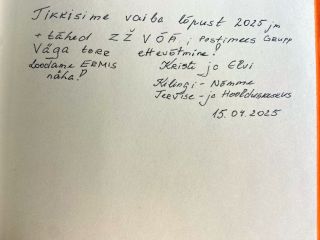 Tikkisime vaiba lõpust 2025 jm
+ tähed Z Ž V Õ Ä ; Postimees Grupp
Väga tore ettevõtmine!
Loodame ERMis
näha!
Kristi ja Elvi
Kilingi-Nõmme
Tervise- ja Hoolduskeskus
15.04.2025